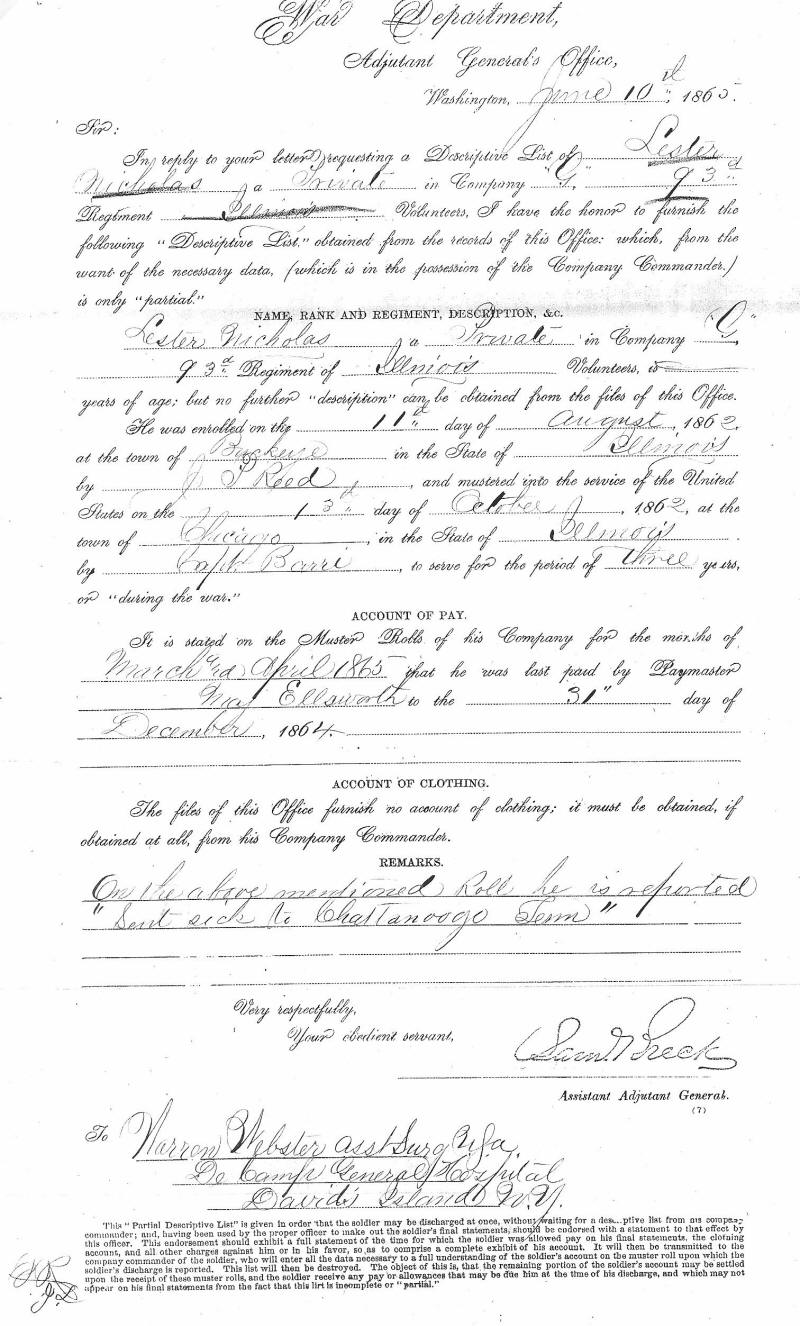 War Department,
Adjutant General's Office,
Washington, June 10th, 1865.
Sir:
In reply to your letter requesting a Descriptive List of Lester
Nicholas a Private in Company "G," 93rd
Regiment Illinois Volunteers, I have the honor to furnish the
following "Descriptive List," obtained from the records of this Office: which, from the
want of the necessary data, (which is in the possession of the Company Commander.)
is only "partial."
NAME, RANK AND REGIMENT, DESCRIPTION, &c.
Lester Nicholas a Private in Company "G"
93d Regiment of Illinois Volunteers, is
years of age; but no further "description" can be obtained from the files of this Office.
He was enrolled on the 11th day of August, 1862,
at the town of Buckeye in the State of Illinois
by J P Reed, and mustered into the service of the United
States on the 13th day of October, 1862, at the
town of Chicago, in the State of Illinois
by Capt Barri, to serve for the period of three years,
or "during the war."
ACCOUNT OF PAY.
It is stated on the Muster Rolls of his Company for the months of
March and April 1865 that he was last paid by Paymaster
Maj Ellsworth to the 31" day of
December, 1864.
ACCOUNT OF CLOTHING.
The files of this Office furnish no account of clothing; it must be obtained, if
obtained at all, from his Company Commander.
REMARKS.
On the above mentioned Roll he is reported
"Sent sick to Chattanooga Tenn"
Very respectfully,
Your obedient servant,
Saml Breck
Assistant Adjutant General.
(7)
To Warren Webster Asst Surg U.S.A.
De Camp General Hospital
Davids Island N.Y.
This "Partial Descriptive List" is given in order that the soldier may be discharged at once, without waiting for a des...ptive list from his company
commander; and, having been used by the proper officer to make out the soldier's final statements, should be endorsed with a statement to that effect by
this officer. This endorsement should exhibit a full statement of the time for which the soldier was allowed pay on his final statements, the clothing
account, and all other charges against him or in his favor, so as to comprise a complete exhibit of his account. It will then be transmitted to the
company commander of the soldier, who will enter all the data necessary to a full understanding of the soldier's account on the muster roll upon which the
soldier's discharge is reported. This list will then be destroyed. The object of this is, that the remaining portion of the soldier's account may be settled
upon the receipt of these muster rolls, and the soldier receive any pay or allowances that may be due him at the time of his discharge, and which may not
appear on his final statements from the fact that this lirt is incomplete or "partial."